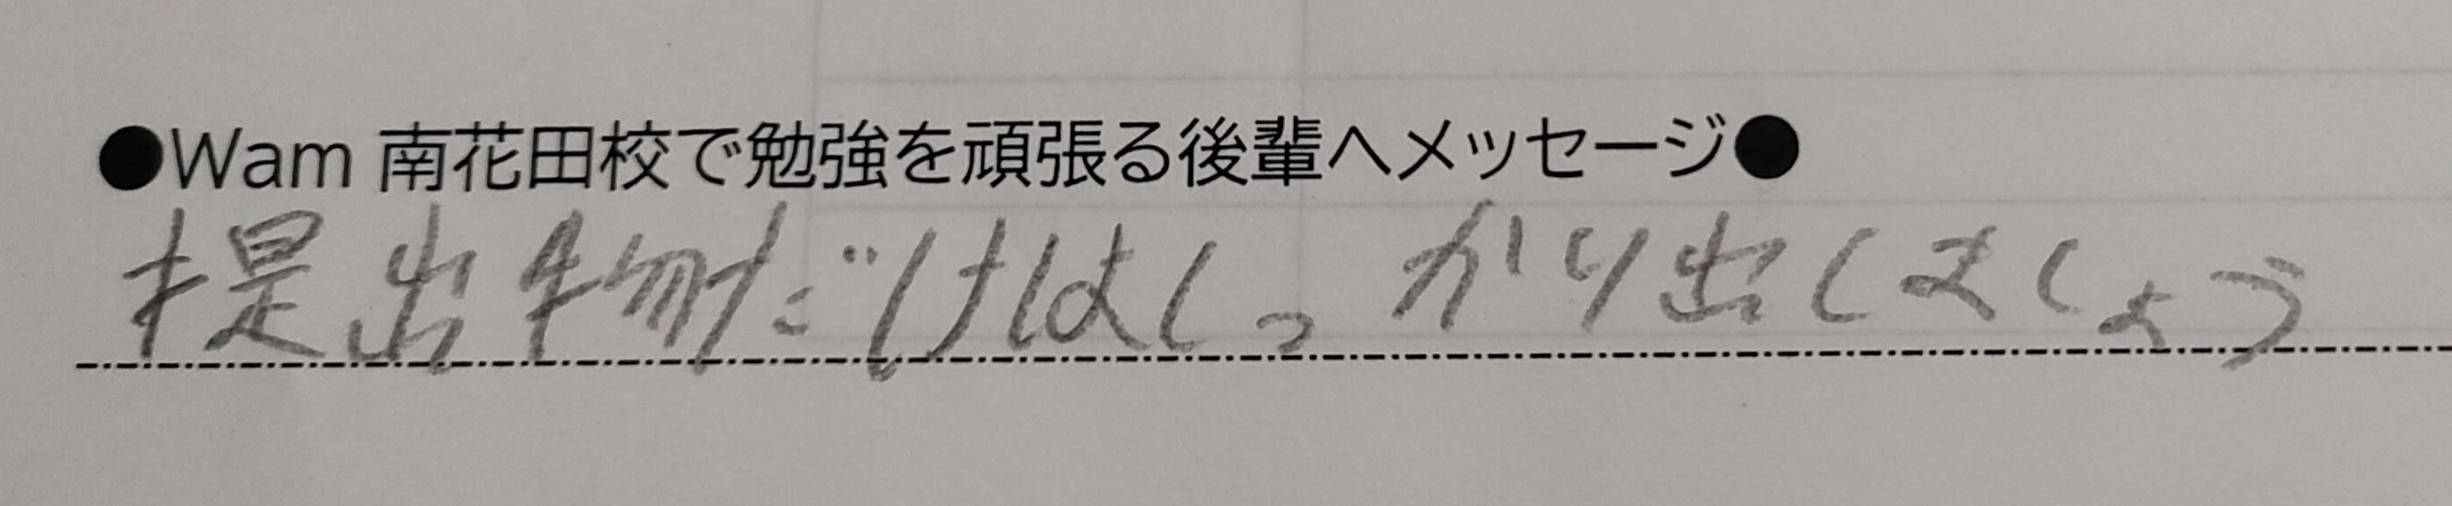 ●Wam 南花田校で勉強を頑張る後輩へメッセージ●
提出物だけはしっかり出しましょう